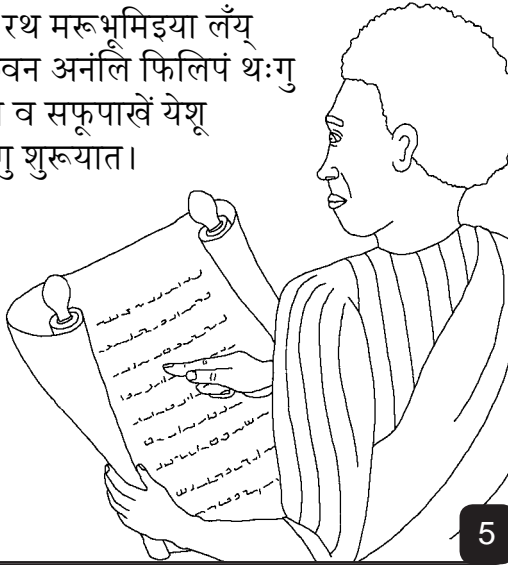 रथ मरूभूमिइया लँय्
वन अनंलि फिलिपं थःगु
व सफूपाखें येशू
गु शुरूयात।
5